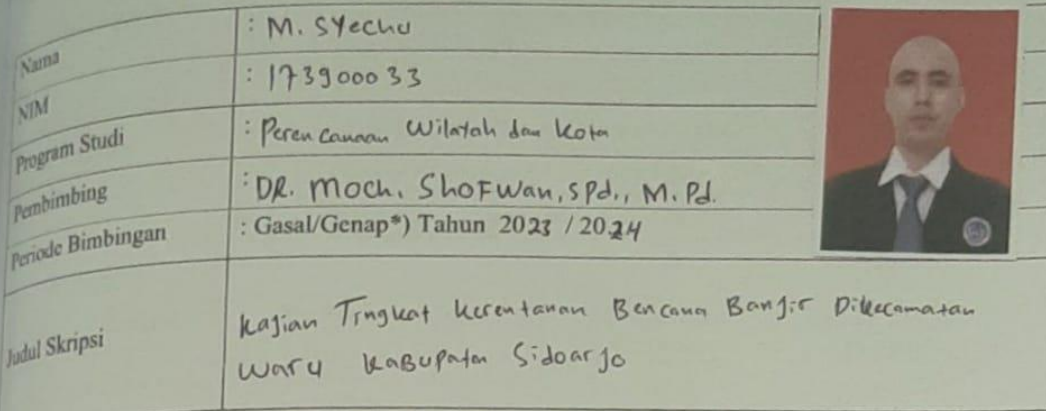 Nama : M. SYechu
NIM : 173900033
Program Studi : Perencanaan Wilayah dan Kota
Pembimbing : DR. Moch. Shofwan, SPd., M.Pd.
Periode Bimbingan : Gasal/Genap*) Tahun 2023 / 2024
Judul Skripsi : Kajian Tingkat Kerentanan Bencana Banjir Dikecamatan
Waru Kabupaten Sidoarjo